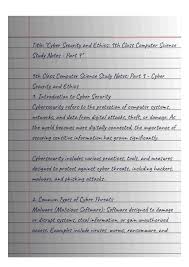 Title: "Cyber Security and Ethics: 9th Class Computer Science
Study Notes - Part 9"
9th Class Computer Science Study Notes: Part 9 - Cyber
Security and Ethics
1. Introduction to Cyber Security
Cybersecurity refers to the protection of computer systems,
networks, and data from digital attacks, theft, or damage. As
the world becomes more digitally connected, the importance of
securing sensitive information has grown significantly.
Cybersecurity includes various practices, tools, and measures
designed to protect against cyber threats, including hackers,
malware, and phishing attacks.
2. Common Types of Cyber Threats
Malware (Malicious Software): Software designed to damage
or disrupt systems, steal information, or gain unauthorized
access. Examples include viruses, worms, ransomware, and